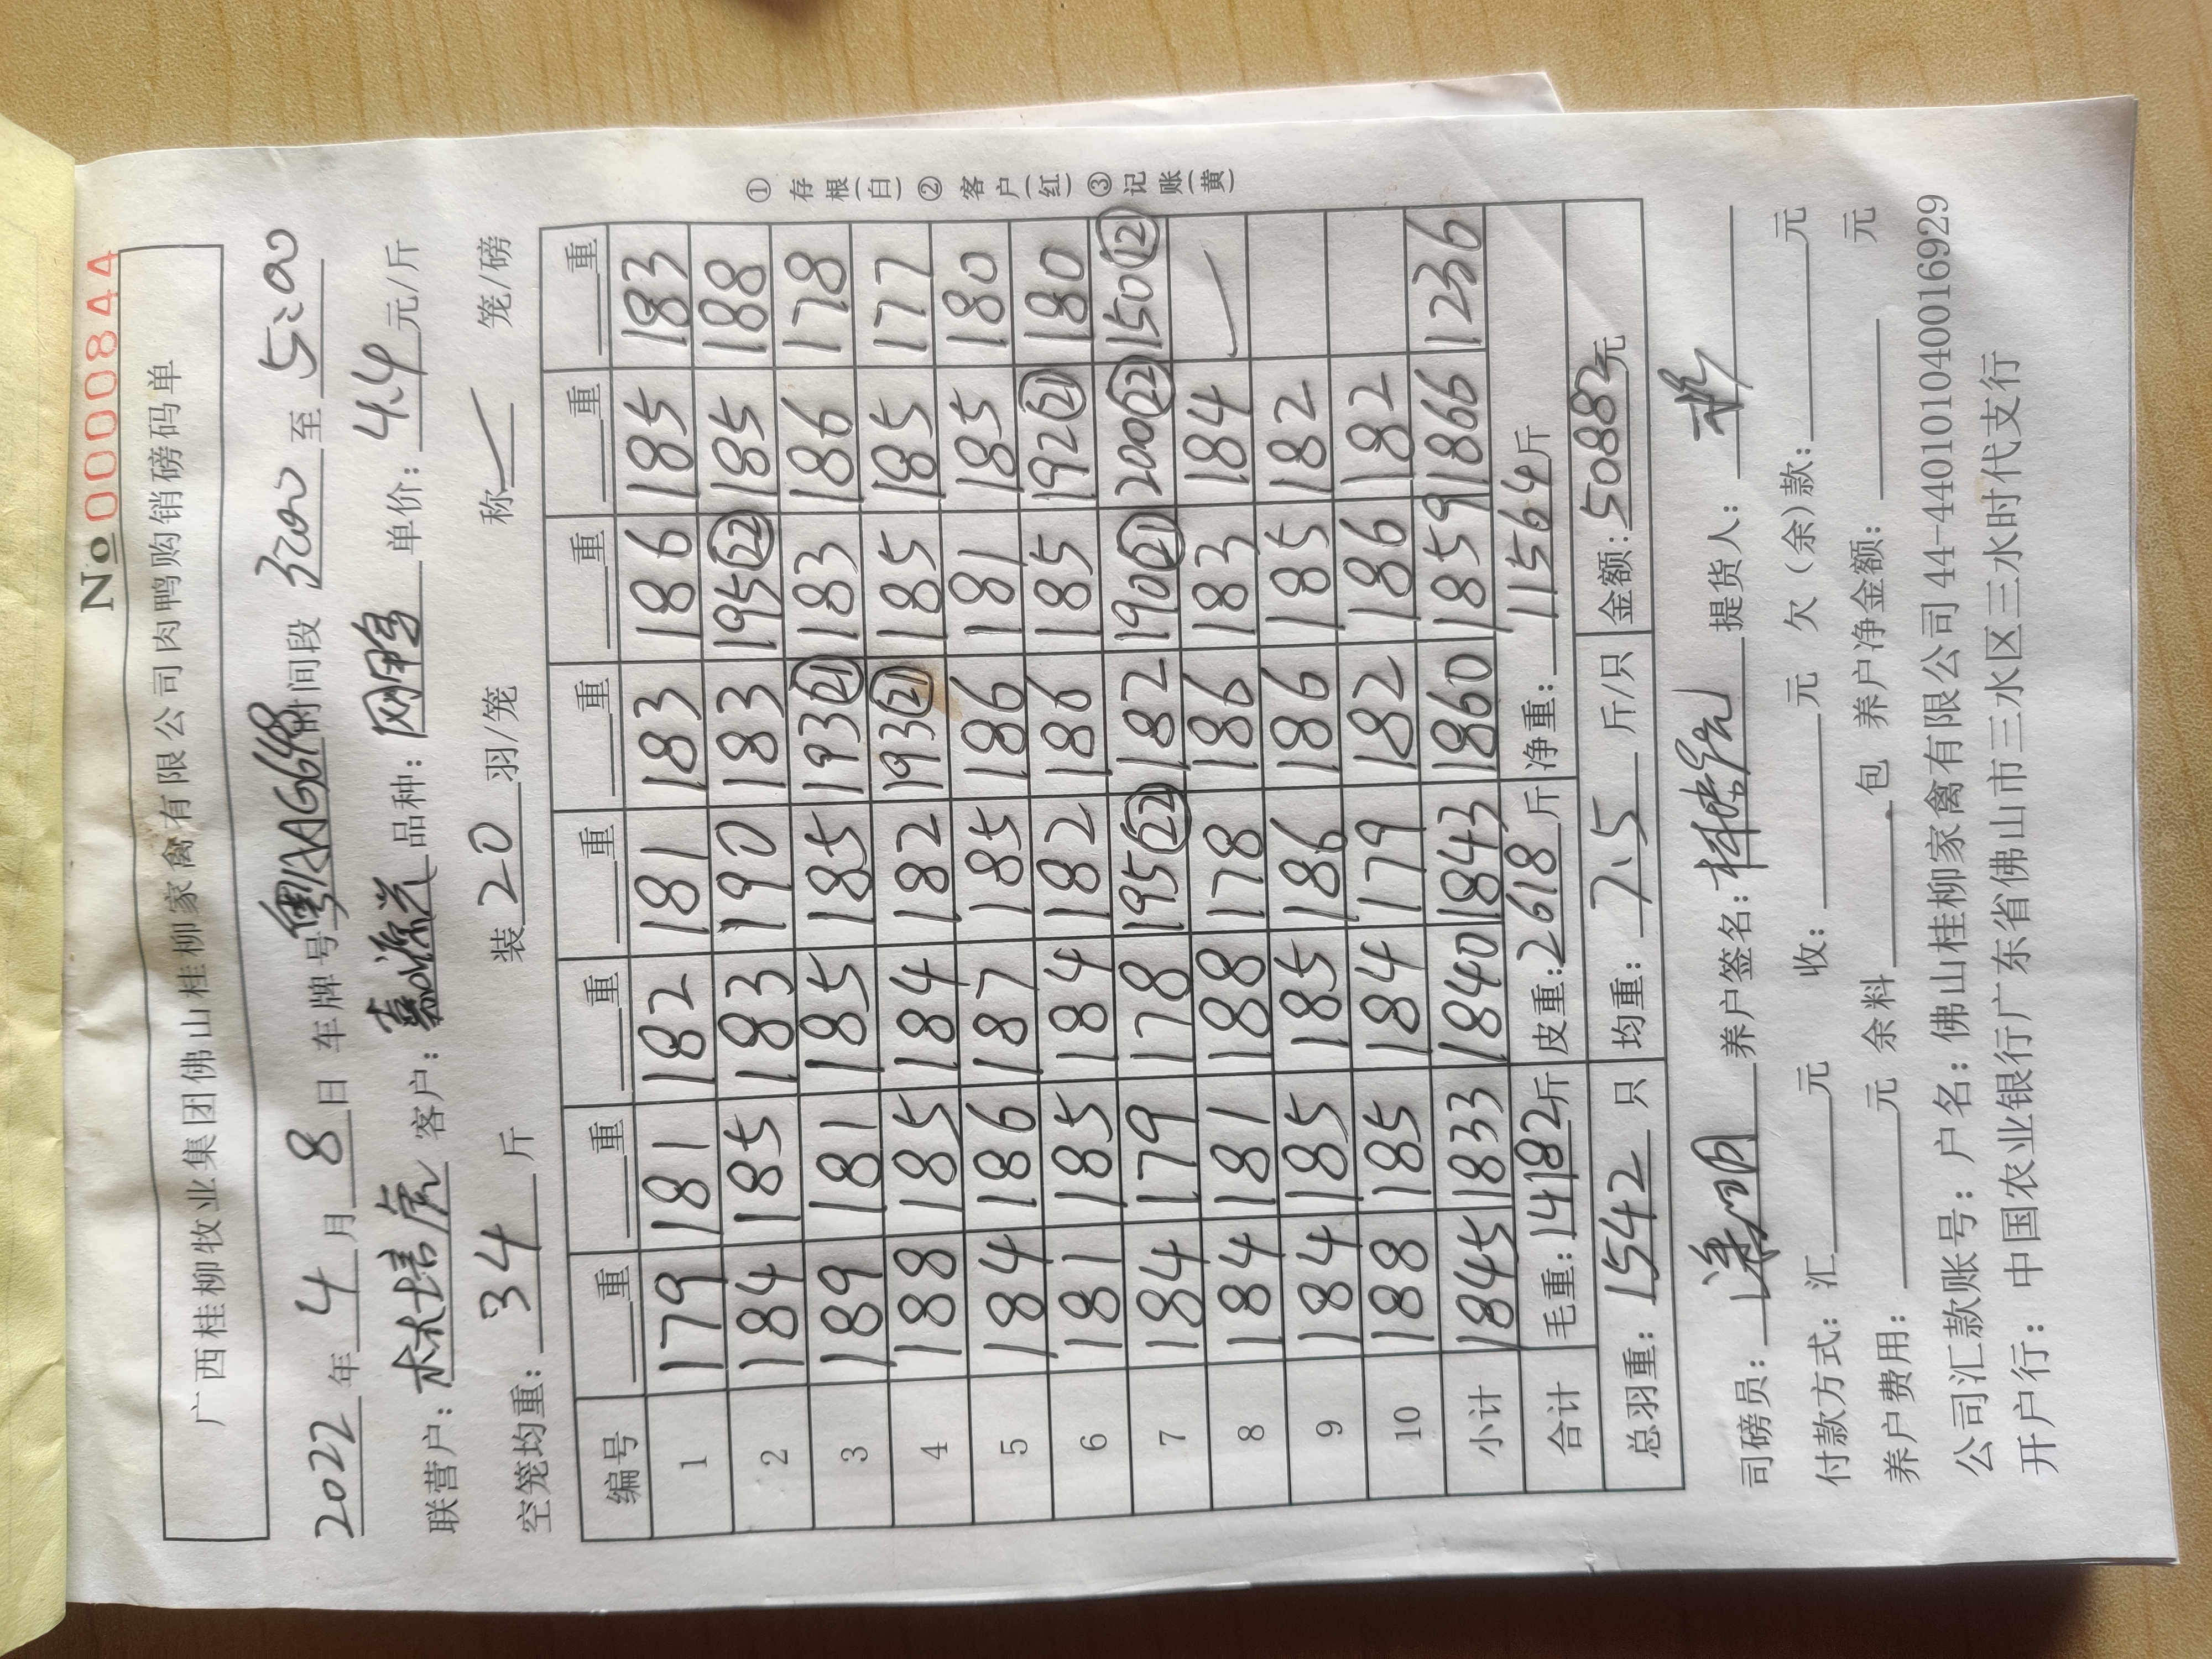 № 0000844
广西桂柳牧业集团佛山桂柳家禽有限公司肉鸭购销磅码单
2022年4月8日 车牌号粤AG648时间段 3:00 至 5:00
联营户：林培虎 客户：嘉源兴 品种：网鸭 单价：4.4元/斤
空笼均重：34斤 装20羽/笼 称 笼/磅
编号 重 重 重 重 重 重 重 重
1 179 181 182 181 183 186 185 183
2 184 185 183 190 183 195(22) 185 188
3 189 181 185 185 193(21) 183 186 178
4 188 185 184 182 193(21) 185 185 177
5 184 186 187 185 186 181 185 180
6 181 185 184 182 186 185 192(21) 180
7 184 179 178 195(22) 182 190(21) 200(22) 150(12)
8 184 181 188 178 186 183 184
9 184 185 185 186 186 185 182
10 188 185 184 179 182 186 182
小计 1845 1833 1840 1843 1860 1859 1866 1236
合计 毛重：14182斤 皮重：2618斤 净重：11564斤
总羽重：1542只 均重：7.5斤/只 金额：50882元
① 存根(白) ② 客户(红) ③ 记账(黄)
司磅员： 养户签名： 提货人：
付款方式：汇 元 收： 元 欠（余）款： 元
养户费用： 元 余料 包 养户净金额： 元
公司汇款账号：户名：佛山桂柳家禽有限公司 44-440101040016929
开户行：中国农业银行广东省佛山市三水区三水时代支行